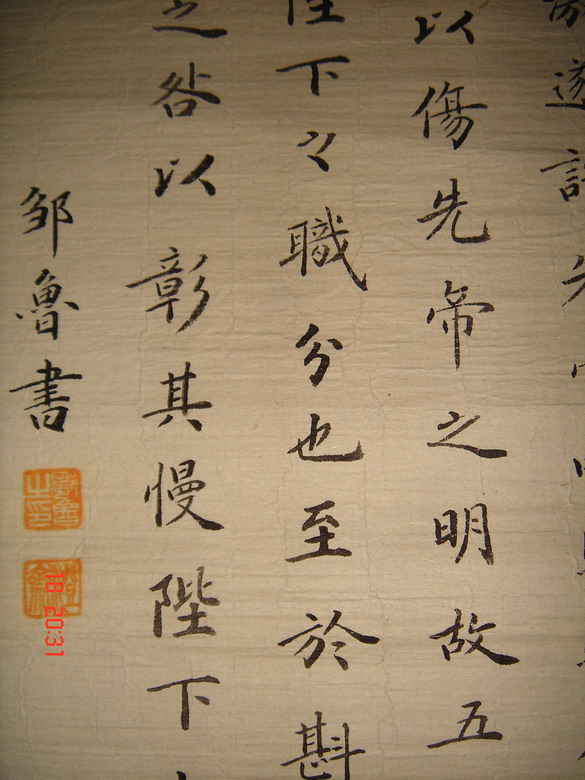 遂許先
以傷先帝之明故五
陛下之職分也至於斟
之咎以彰其慢陛下
邹魯書
鄒魯之印
18 20:31